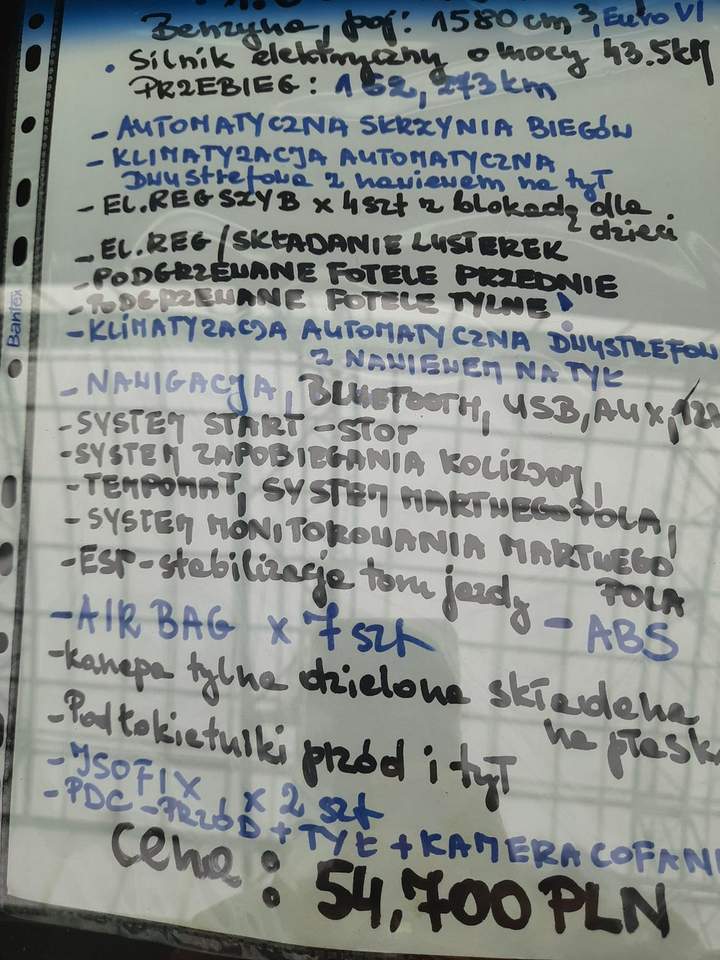 Benzyna, poj: 1580 cm³, Euro VI
• Silnik elektryczny o mocy 43.5kM
PRZEBIEG: 162,273km
- AUTOMATYCZNA SKRZYNIA BIEGÓW
- KLIMATYZACJA AUTOMATYCZNA
Dwustrefowa z nawiewem na tył
- EL.REG SZYB x 4szt z blokadą dla
dzieci
- EL.REG/SKŁADANIE LUSTEREK
- PODGRZEWANE FOTELE PRZEDNIE
- PODGRZEWANE FOTELE TYLNE
- KLIMATYZACJA AUTOMATYCZNA DWUSTREFOW
Z NAWIEWEM NA TYŁ
- NAWIGACJA, BLUETOOTH, USB, AUX,
- SYSTEM START-STOP
- SYSTEM ZAPOBIEGANIA KOLIZJOM,
- TEMPOMAT, SYSTEM MARTWEGO POLA,
- SYSTEM MONITOROWANIA MARTWEGO
POLA
- ESP-stabilizacja toru jazdy
- AIR BAG x 7 szt - ABS
- Kanapa tylna dzielona składana
na płask
- Podłokietniki przód i tył
- ISOFIX x 2 szt
- PDC - PRZÓD + TYŁ + KAMERA COFANI
Cena: 54,700 PLN
Bantex